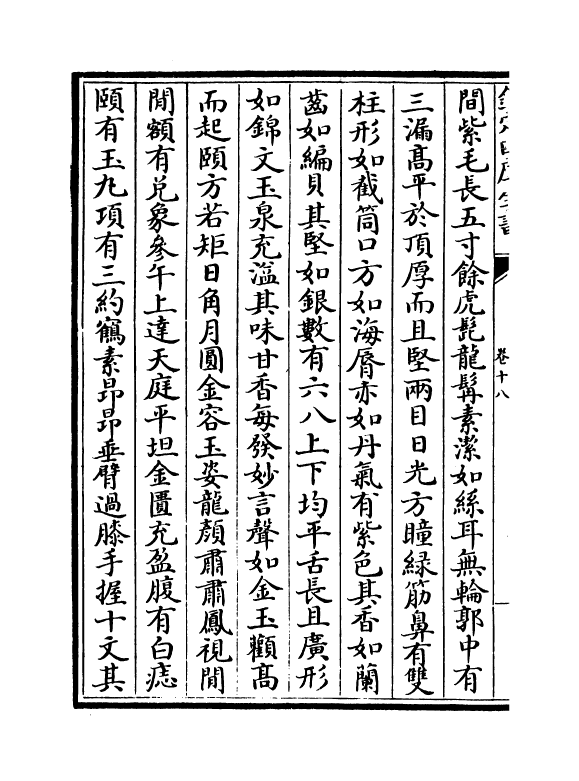 卷十八
間紫毛長五寸餘虎髭龍髯素潔如絲耳無輪郭中有
三漏髙平於頂厚而且堅兩目日光方瞳緑筋鼻有雙
柱形如截筒口方如海脣赤如丹氣有紫色其香如蘭
齒如編貝其堅如銀數有六八上下均平舌長且廣形
如錦文玉泉充溢其味甘香每發妙言聲如金玉顴髙
而起頤方若矩日角月圓金容玉姿龍顔肅肅鳳視閒
閒額有兊象參午上達天庭平坦金匱充盈腹有白痣
頤有玉九項有三約鶴素昻昻垂臂過膝手握十文其